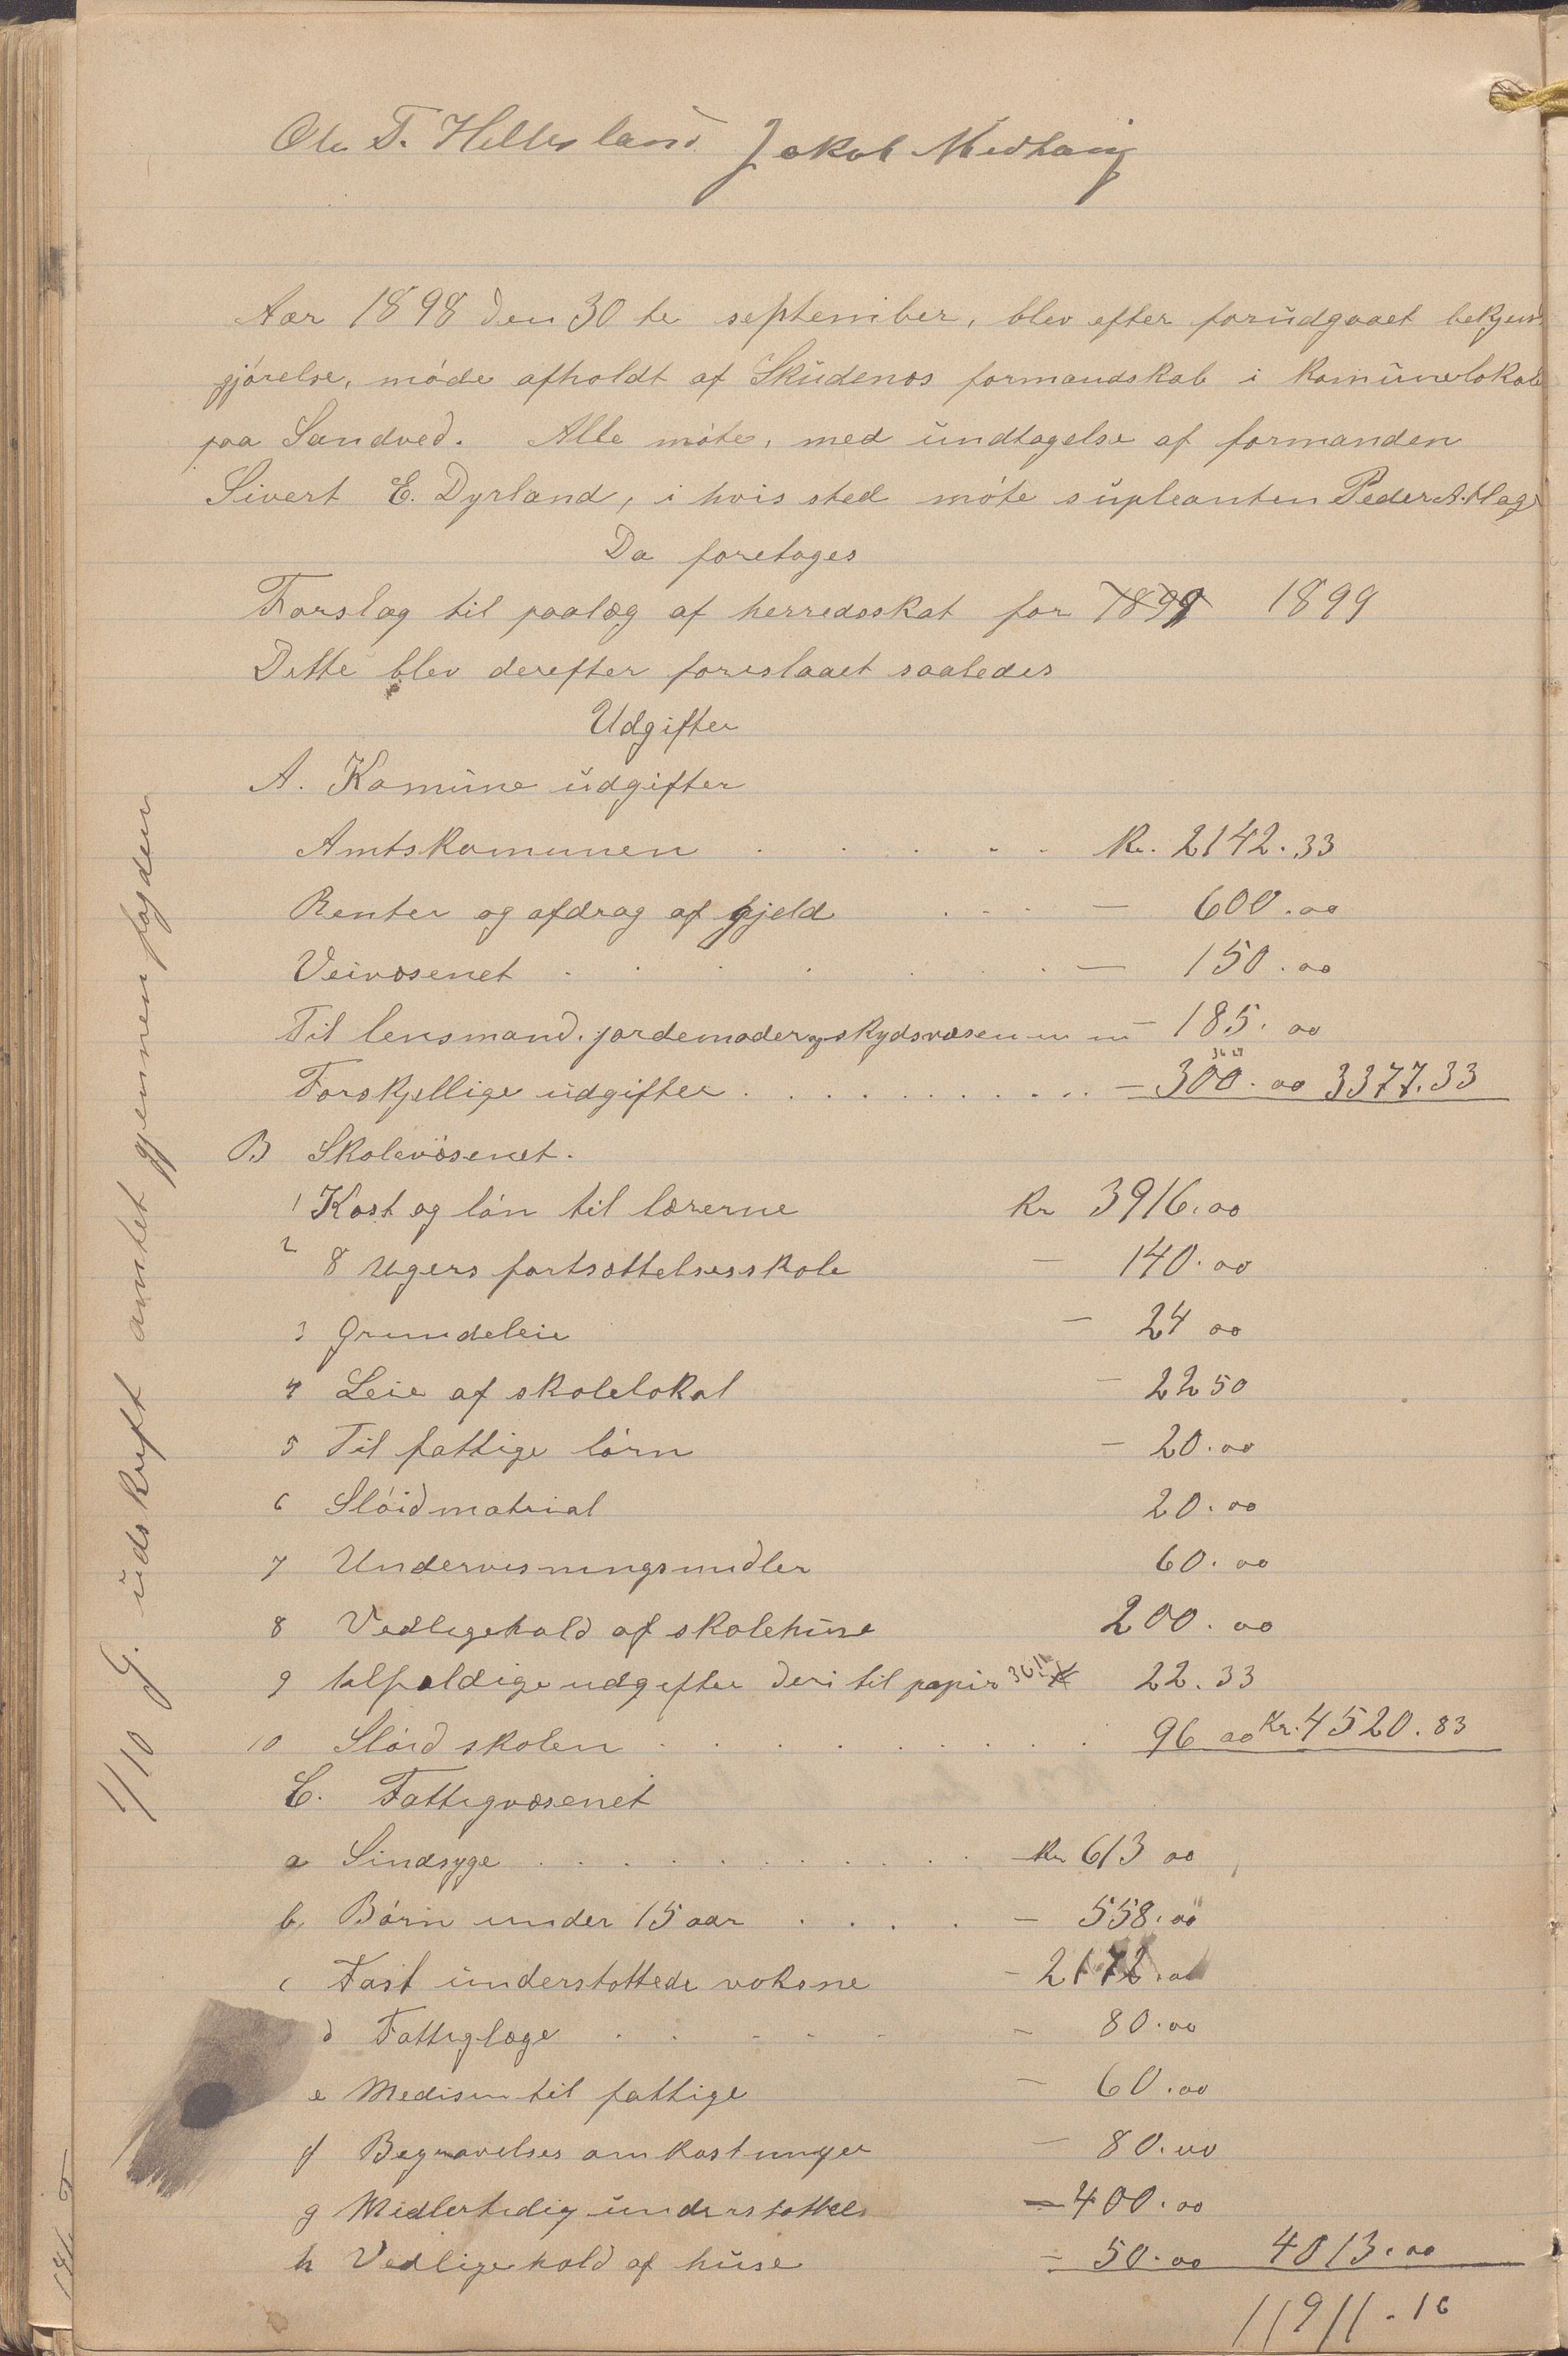 Ole T. Hillesland Jakob Medhaug
Aar 1898 den 30te september, blev efter forudgaaet bekjend
gjørelse, møde afholdt af Skudenæs formandskab i komunelokale
paa Sandved. Alle møte, med undtagelse af formanden
Sivert E. Dyrland, i hvis sted møte supleanten Peder A. Hage
Da foretages
Forslag til paalæg af herredsskat for 1899 1899
Dette blev derefter foreslaaet saaledes
Udgifter
A. Komune udgifter
Amtskomunen . . . . . Kr. 2142.33
Renter og afdrag af gjeld . . . — 600.00
Veivæsenet . . . . . . . — 150.00
Til lensmand. jordemoder og skydsvæsen — 185.00
Forskjellige udgifter . . . . . . . . . . — 300.00 3377.33
B Skolevæsenet.
1 Kost og løn til lærerne Kr 3916.00
2 8 Ugers fortsættelsesskole — 140.00
3 Grundeleie — 24 00
4 Leie af skolelokal — 22 50
5 Til fattige børn — 20.00
6 Sløidmatrial 20.00
7 Undervisningsmidler 60.00
8 Vedligehold af skolehuse 200.00
9 tilfældige udgifter deri til papir 22.33
10 Sløid skolen . . . . . . . . 96 00 Kr. 4520.83
C. Fattigvæsenet
a Sindsyge . . . . . . . . . . . Kr 613 00
b. Børn under 15 aar . . . . — 558.00
c Fast understøttede voksne — 2172.00
d Fattiglæge . . . . . — 80.00
e Medisin til fattige — 60.00
f Begravelses omkostninger — 80.00
g Midlertidig understøttels — 400.00
h Vedligehold af huse — 50.00 4013.00
11911.16
4/10 G. udskrift amtet gjennem fogden